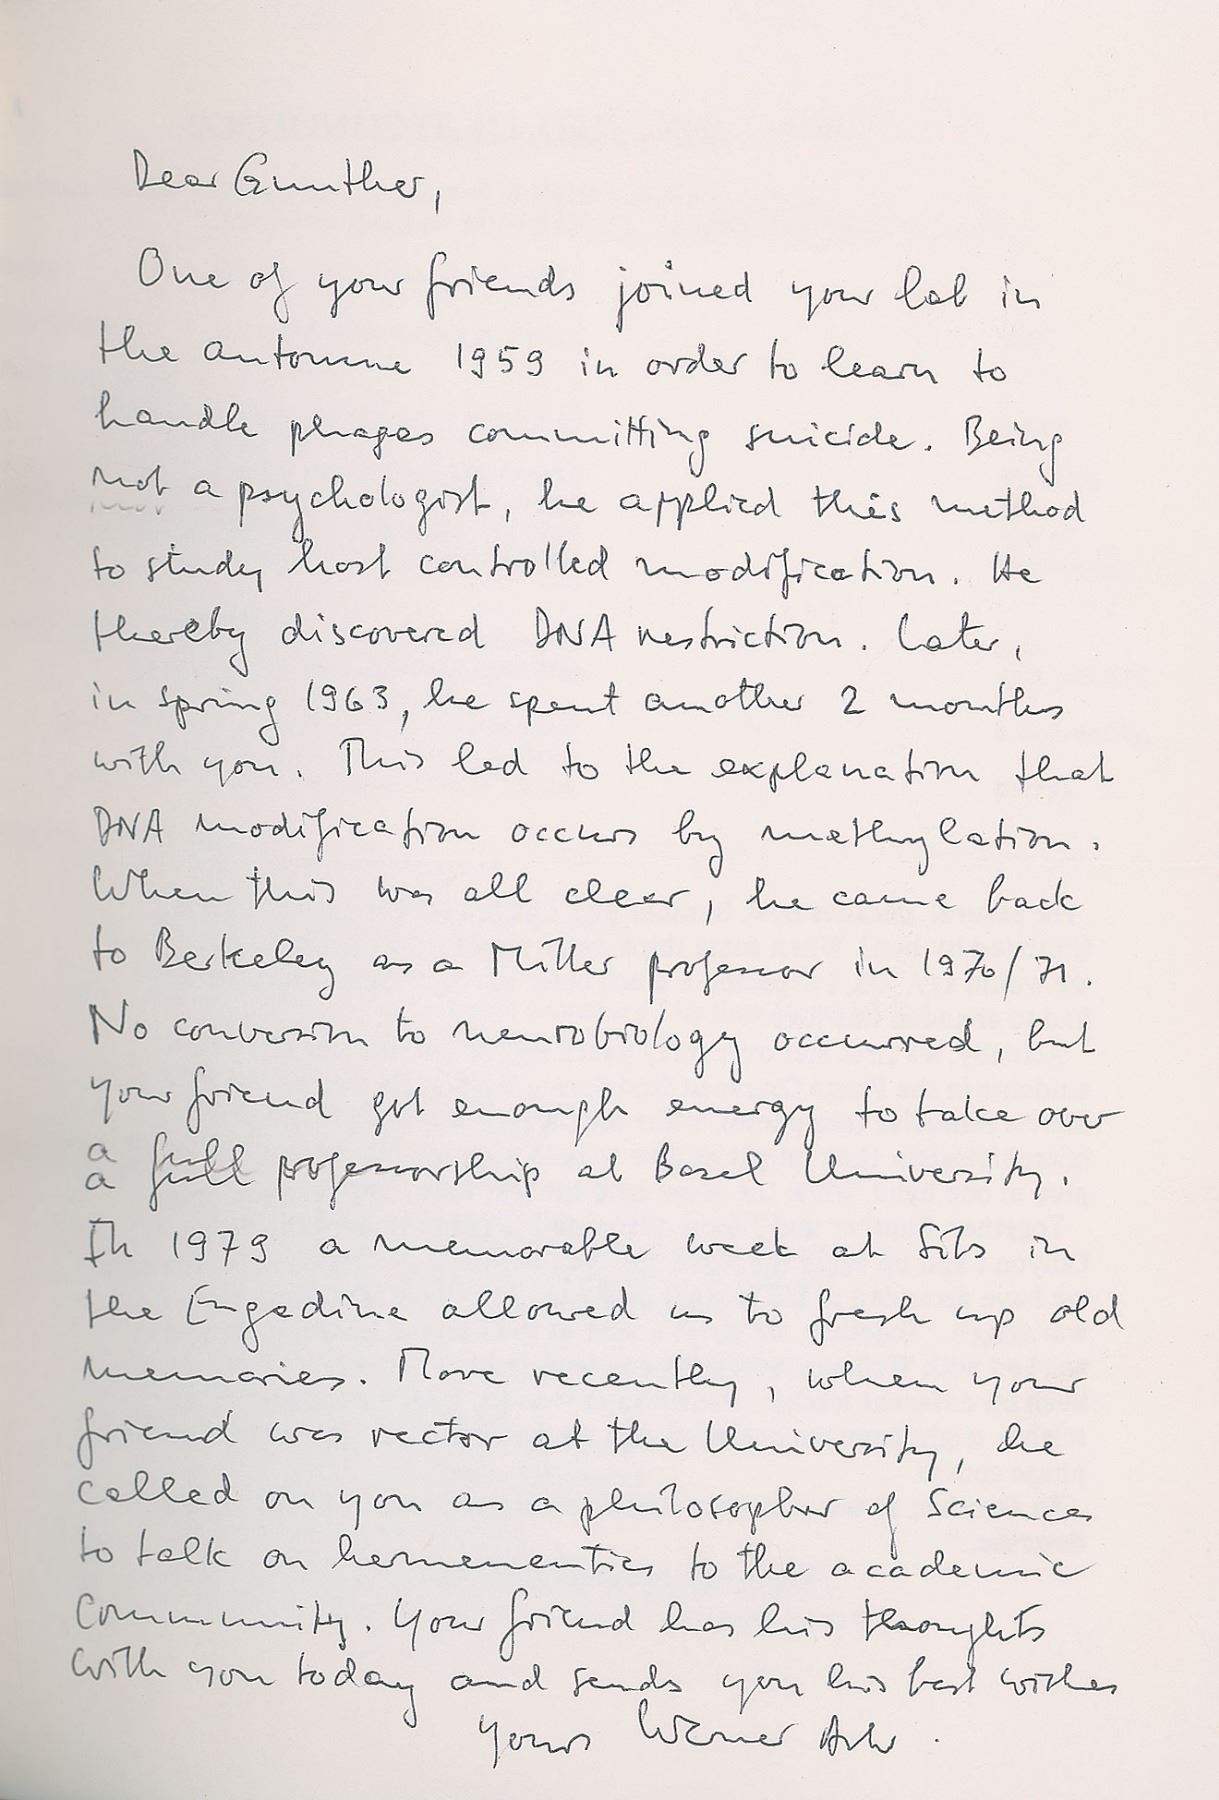 Dear Gunther,
One of your friends joined your lab in
the automne 1959 in order to learn to
handle phages committing suicide. Being
not a psychologist, he applied this method
to study host controlled modification. He
thereby discovered DNA restriction. Later,
in spring 1963, he spent another 2 months
with you. This led to the explanation that
DNA modification occurs by methylation.
When this was all clear, he came back
to Berkeley as a Miller professor in 1970/71.
No conversion to neurobiology occurred, but
your friend got enough energy to take over
a full professorship at Basel University.
In 1979 a memorable week at Sils in
the Engadine allowed us to fresh up old
memories. More recently, when your
friend was rector at the University, he
called on you as a philosopher of Sciences
to talk on hermeneutics to the academic
Community. Your friend has his thoughts
with you today and sends you his best wishes
Yours Werner Arber.